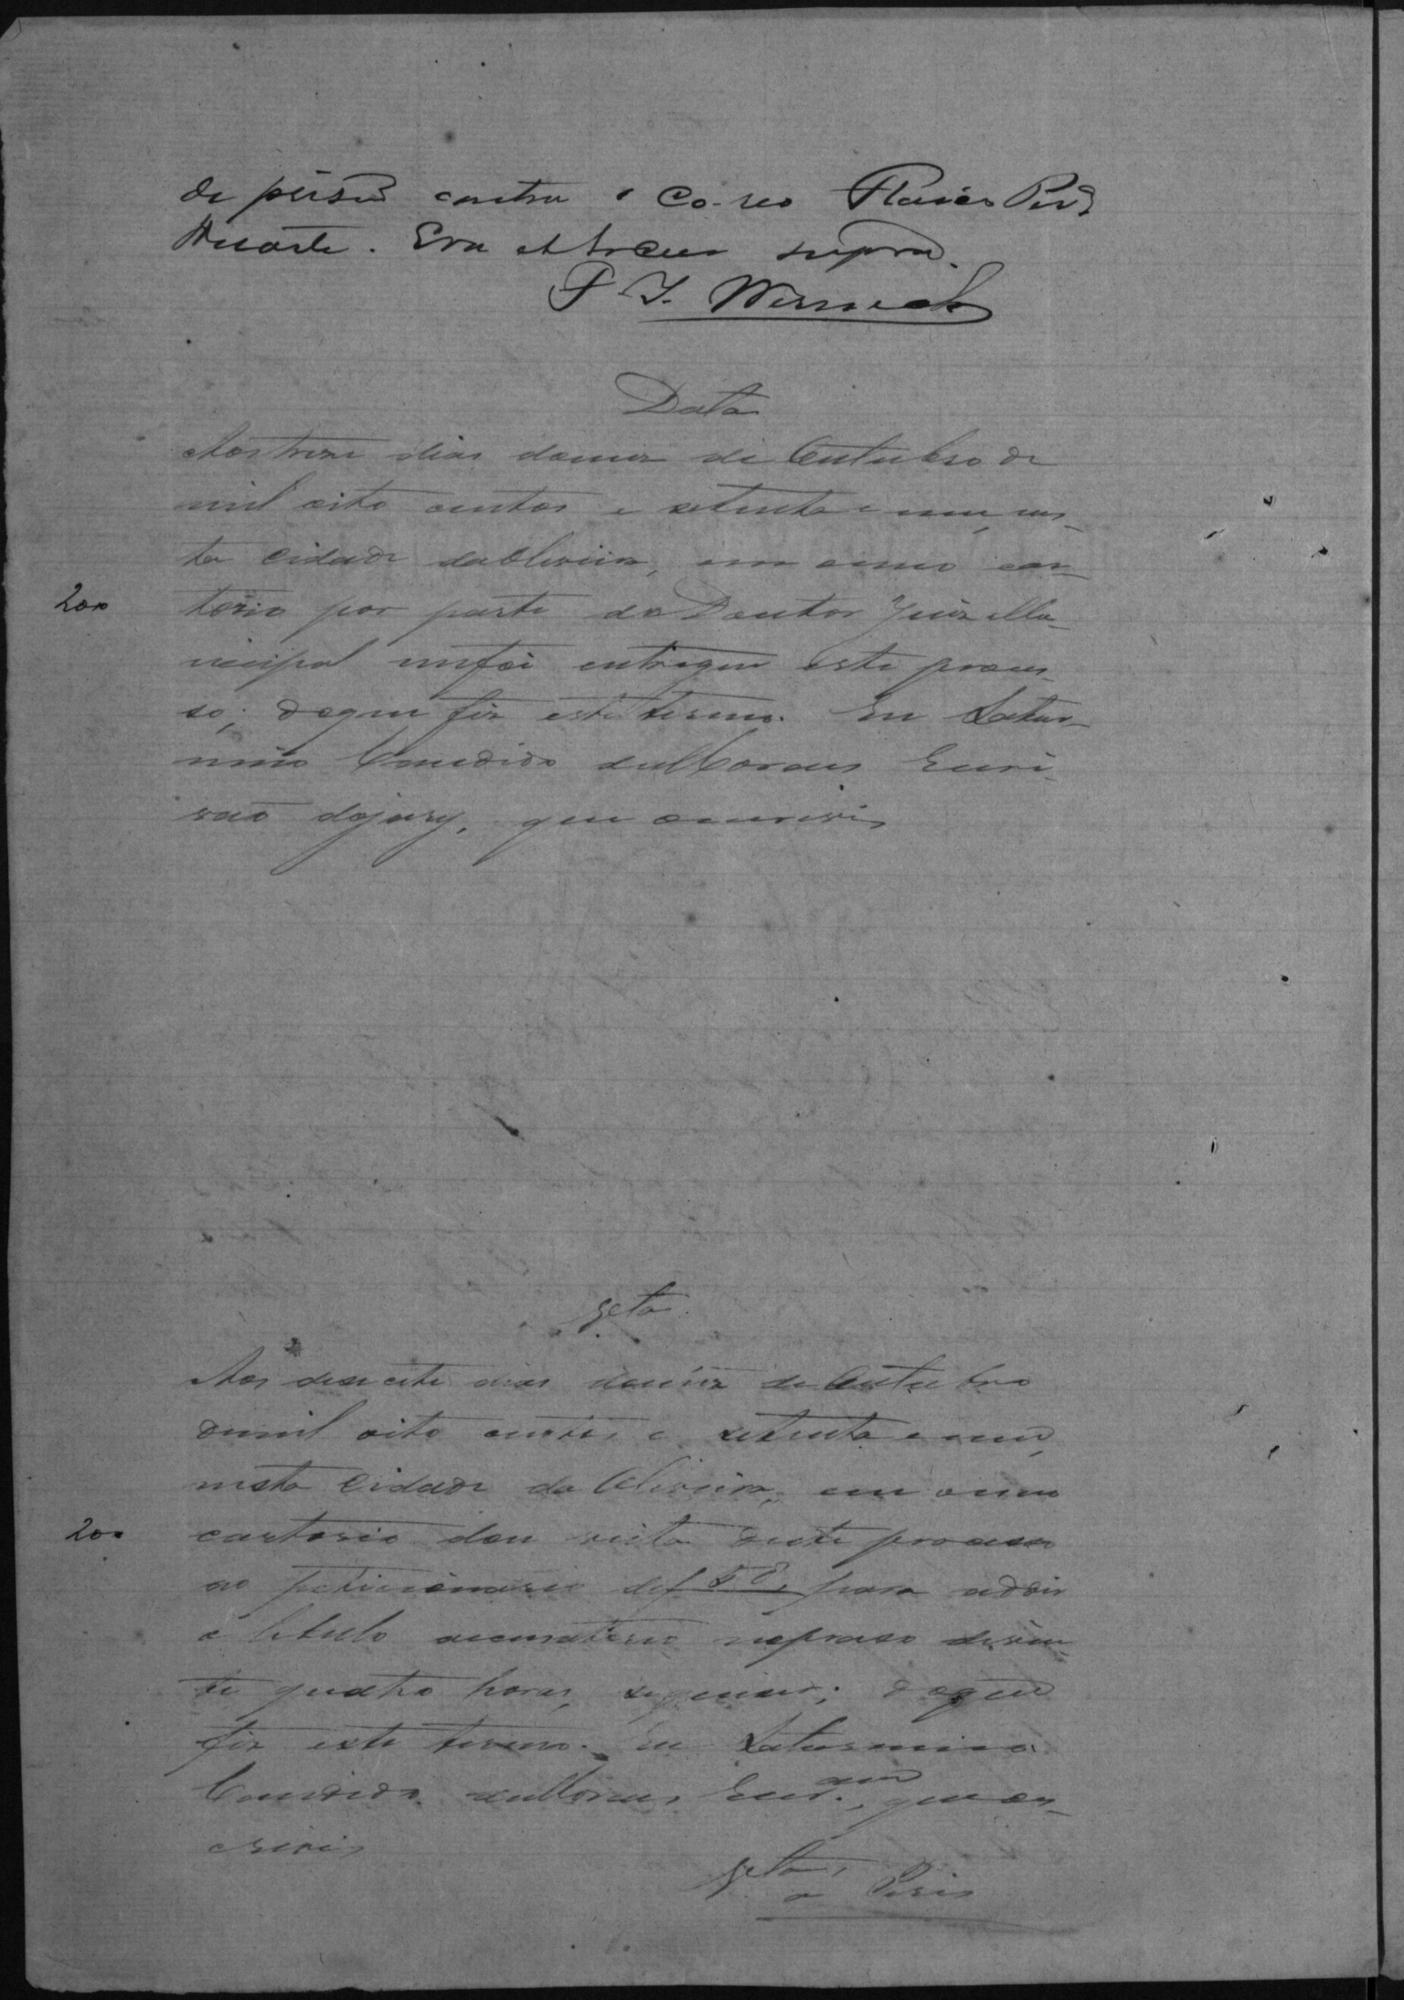 de prisão contra o co-reo Flavio Per.ª
Duarte. Era ut retro supra.
F. J. Werneck
Data
Aos treze dias do mez de Outubro de
mil oito centos e setenta e um, nes-
ta Cidade da Oliveira, em o meu car-
200
torio por parte do Doutor Juiz Mu-
nicipal me foi entregue este proces-
so; do que fiz este termo. Eu Satur-
nino Candido de Moraes Escri-
vão do jury, que o escrevi
Vta
Aos dezasete dias do mez de Outubro
de mil oito centos e setenta e um,
nesta Cidade da Oliveira, em o meu
200
cartorio dou vista deste processo
ao peticionario de f 58, para addir
o libello accusatorio no praso de vin-
te quatro horas, seguintes; do que
fiz este termo. Eu Saturnino
Candido de Moraes Escr.am, que o es-
crevi
Vta
a Peres